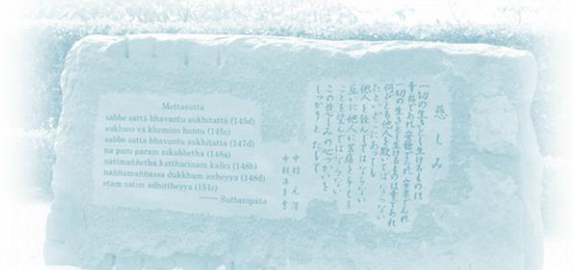 Mettasutta
sabbe sattā bhavantu sukhitattā (145d)
sukhino vā khemino hontu (145c)
sabbe sattā bhavantu sukhitattā (147d)
na paro param nikubbetha (148a)
nātimaññetha katthacinam kañci (148b)
naññamaññassa dukkham iccheyya (148d)
etam satim adhiṭṭheyya (151c)
—— Suttanipāta
慈しみ
一切の生きとし生けるものは
幸福であれ 安穏であれ 安楽であれ
一切の生きとし生けるものは幸であれ
何ぴとも他人を欺いてはならない
たといどこにあっても
他人を軽んじてはならない
互いに他人に苦痛を与える
ことを望んではならない
この慈しみの心づかいを
しっかりと たもて
中村 元 譯
中村